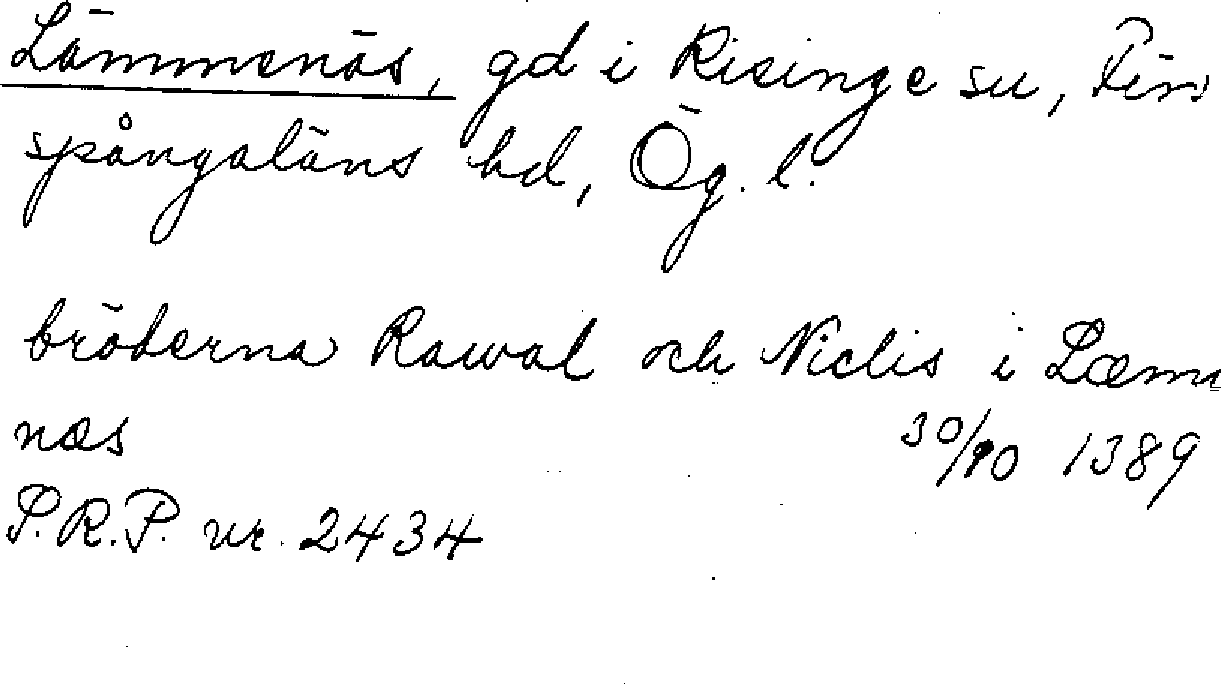 Lämmenäs, gd i Risinge sn, Fin
spångaläns hd, Ög. l.
bröderna Rawal och Niclis i Læm
næs 30/10 1389
S.R.P. nr. 2434